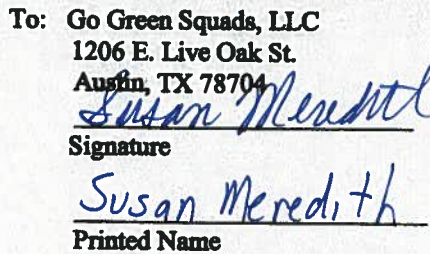 To: Go Green Squads, LLC
1206 E. Live Oak St.
Austin, TX 78704
Susan Meredith
Signature
Susan Meredith
Printed Name